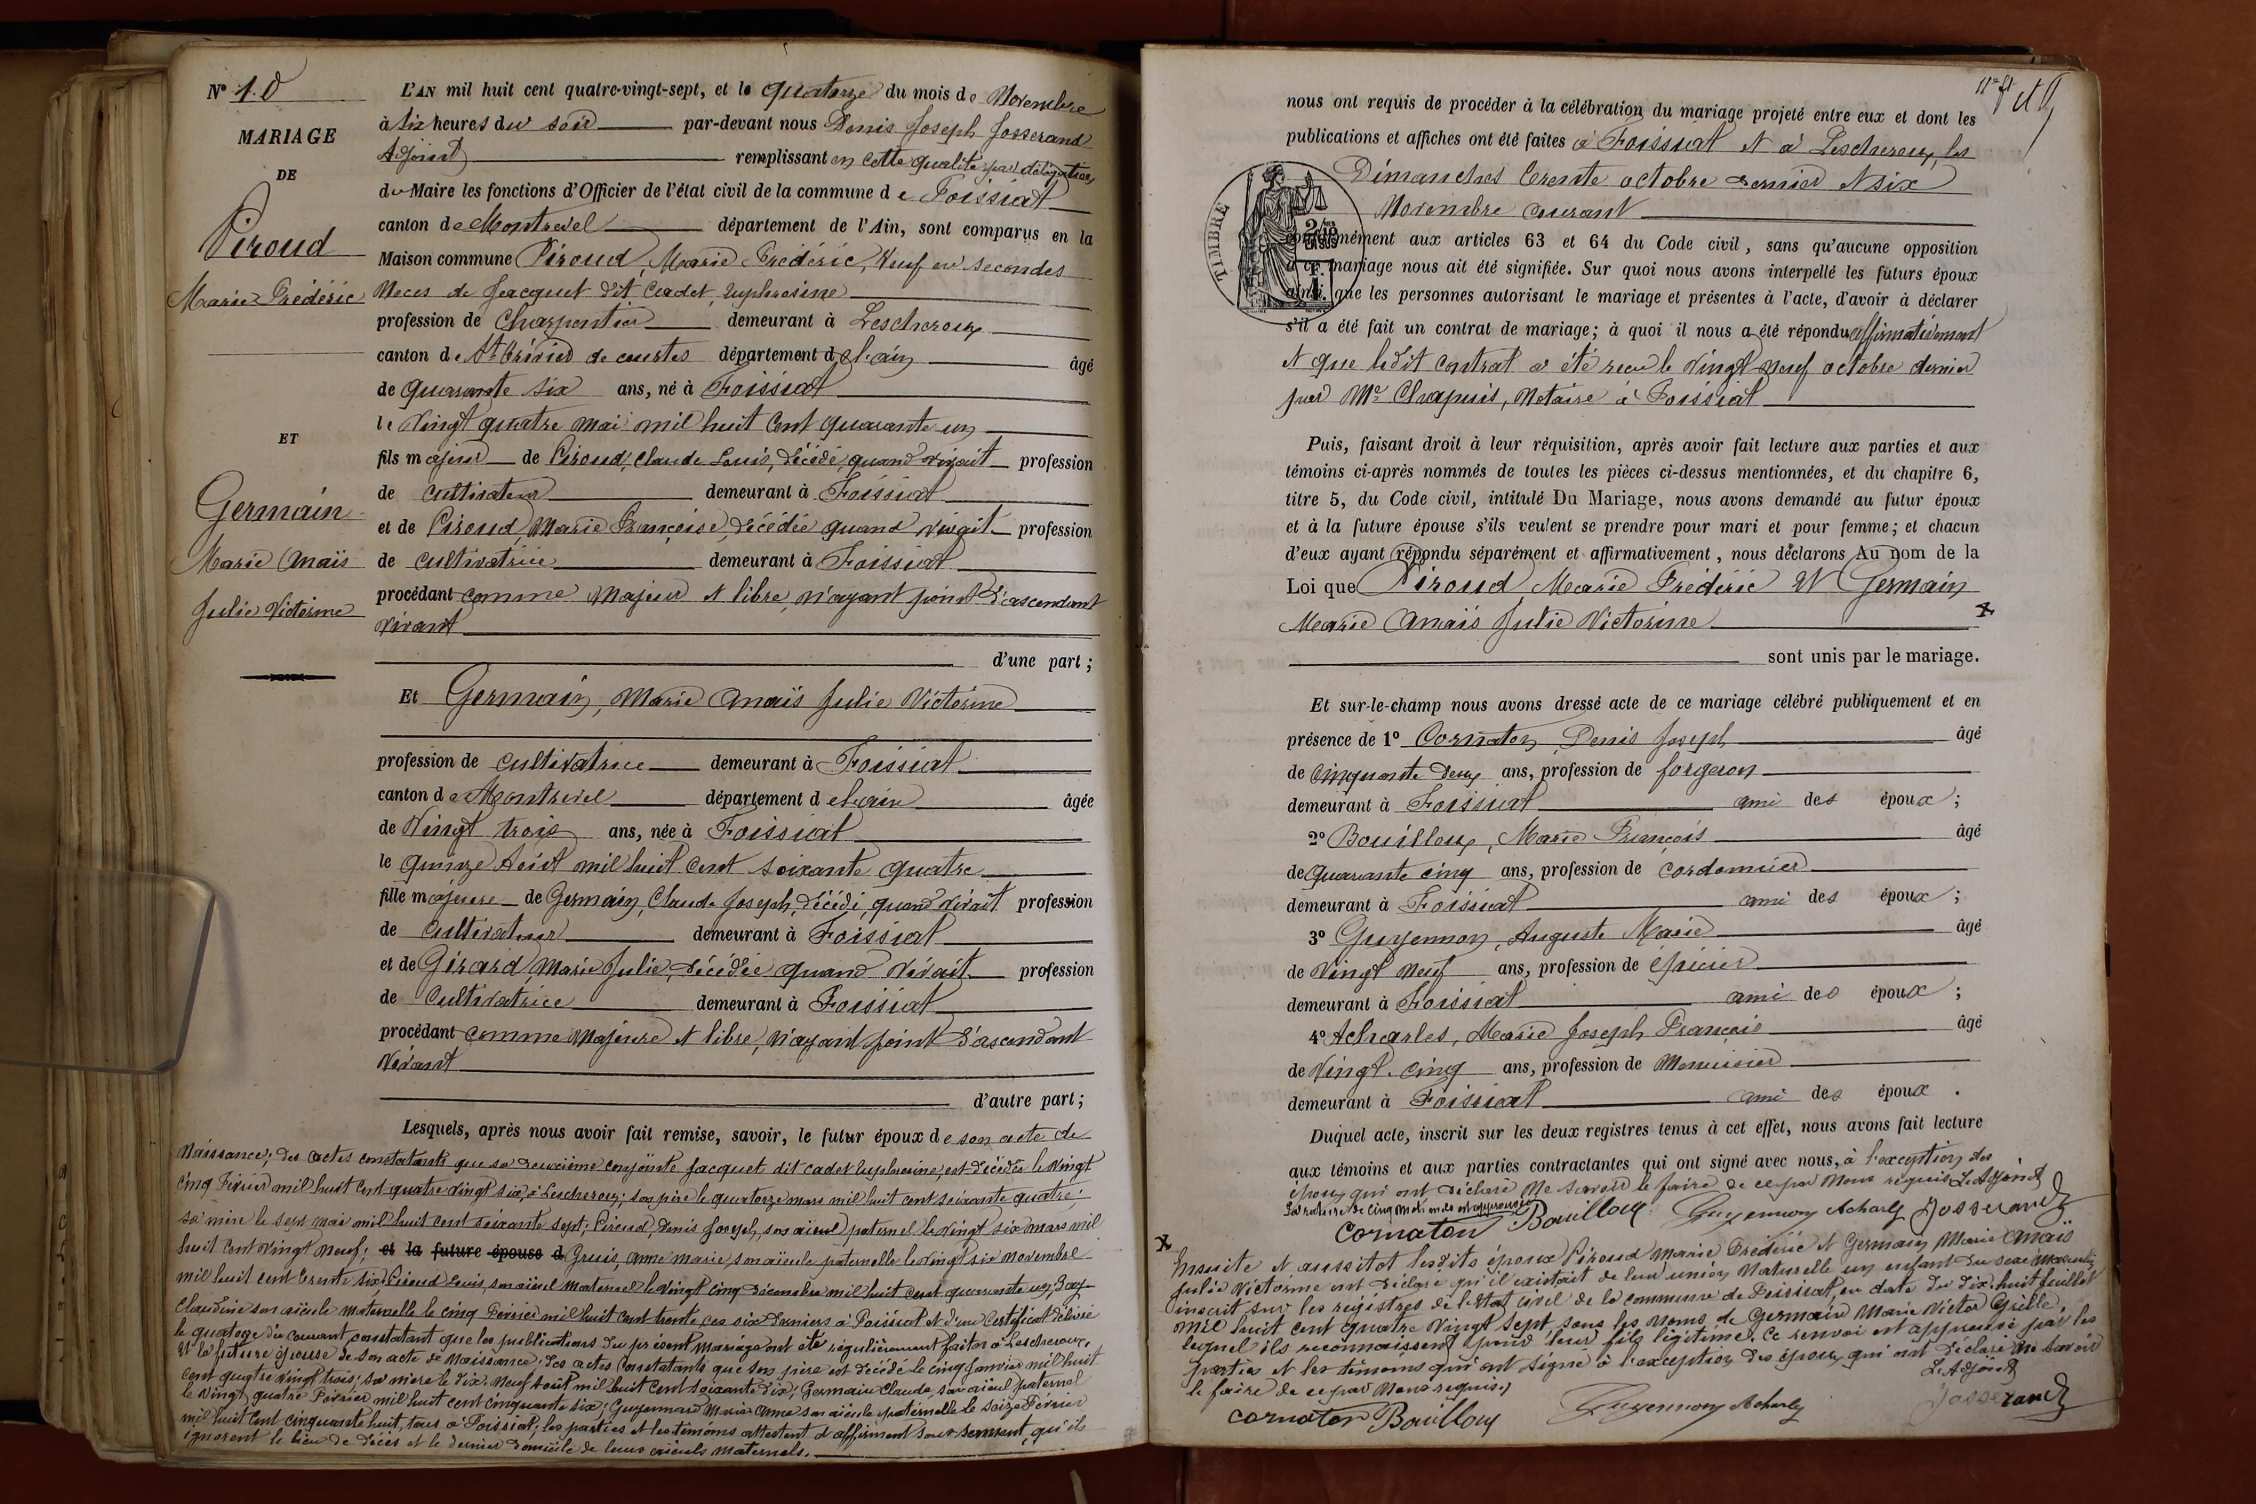 N° 10
MARIAGE
DE
Piroud
Marie Frédéric
ET
Germain
Marie Anaïs
Julie Victorine
L'AN mil huit cent quatre-vingt-sept, et le quatorze du mois de Novembre
à six heures du soir par-devant nous Denis Joseph Josserand
Adjoint remplissant en cette qualité par délégation
du Maire les fonctions d'Officier de l'état civil de la commune de Foissiat
canton de Montrevel département de l'Ain, sont comparus en la
Maison commune Piroud, Marie Frédéric, Veuf en secondes
Noces de Jacquet dit Cadet, Euphrosine
profession de Charpentier demeurant à Lescheroux
canton de St Trivier de courtes département de l'ain âgé
de quarante six ans, né à Foissiat
le Vingt quatre mai mil huit cent quarante un
fils majeur de Piroud, Claude Louis, décédé, quand vivait profession
de cultivateur demeurant à Foissiat
et de Piroud, Marie Françoise, décédée quand vivait profession
de cultivatrice demeurant à Foissiat
procédant comme Majeur et libre, n'ayant point d'ascendant
vivant
d'une part ;
Et Germain, Marie Anaïs Julie Victorine
profession de cultivatrice demeurant à Foissiat
canton de Montrevel département de l'ain âgée
de Vingt trois ans, née à Foissiat
le quinze Août mil huit cent soixante quatre
fille majeure de Germain, Claude Joseph, décédé, quand vivait profession
de cultivateur demeurant à Foissiat
et de Gérard, Marie Julie, décédée quand vivait profession
de Cultivatrice demeurant à Foissiat
procédant comme Majeure et libre, n'ayant point d'ascendant
Vivant
d'autre part ;
Lesquels, après nous avoir fait remise, savoir, le futur époux de son acte de
Naissance; des actes constatants que sa deuxième conjointe Jacquet dit cadet Euphrosine, est décédée le vingt
cinq Février mil huit cent quatre vingt six, à Lescheroux; son père le quatorze mars mil huit cent soixante quatre;
sa mère le sept mai mil huit cent soixante sept; Piroud, Denis Joseph, son aïeul paternel le vingt six mars mil
huit cent vingt neuf; et la future épouse d Gruis, anne marie, son aïeule paternelle le vingt six novembre
mil huit cent trente six; Piroud Louis, son aïeul maternel le vingt cinq décembre mil huit cent quarante un;
Claudine son aïeule maternelle le cinq Février mil huit cent trente, ces six derniers à Foissiat et d'un certificat délivré
le quatorze du courant, constatant que les publications du présent mariage ont été régulièrement faites à Lescheroux.
Et la future épouse de son acte de Naissance; des actes constatants que son père est décédé le cinq Janvier mil huit
cent quatre vingt trois; sa mère le dix-neuf août mil huit cent soixante dix; Germain Claude, son aïeul paternel
le vingt quatre Février mil huit cent cinquante six; Guyennard Marie Anne son aïeule paternelle le seize Février
mil huit cent cinquante huit, tous à Foissiat; les parties et les témoins attestent et affirment sous serment, qu'ils
ignorent le lieu de décès et le dernier domicile de leurs aïeuls maternels.
nous ont requis de procéder à la célébration du mariage projeté entre eux et dont les
publications et affiches ont été faites à Foissiat et à Lescheroux, les
Dimanches trente octobre dernier et six
Novembre courant
TIMBRE
2/10 EN SUS
conformément aux articles 63 et 64 du Code civil, sans qu'aucune opposition
à ce mariage nous ait été signifiée. Sur quoi nous avons interpellé les futurs époux
ainsi que les personnes autorisant le mariage et présentes à l'acte, d'avoir à déclarer
s'il a été fait un contrat de mariage; à quoi il nous a été répondu affirmativement
et que ledit contrat a été reçu le vingt neuf octobre dernier
par Me Chapuis, Notaire à Foissiat
Puis, faisant droit à leur réquisition, après avoir fait lecture aux parties et aux
témoins ci-après nommés de toutes les pièces ci-dessus mentionnées, et du chapitre 6,
titre 5, du Code civil, intitulé Du Mariage, nous avons demandé au futur époux
et à la future épouse s'ils veulent se prendre pour mari et pour femme; et chacun
d'eux ayant répondu séparément et affirmativement, nous déclarons Au nom de la
Loi que Piroud, Marie Frédéric et Germain
Marie Anaïs Julie Victorine
sont unis par le mariage.
Et sur-le-champ nous avons dressé acte de ce mariage célébré publiquement et en
présence de 1° Cornaton, Denis Joseph âgé
de cinquante deux ans, profession de forgeron
demeurant à Foissiat ami des époux ;
2° Bouilloux, Marie François âgé
de quarante cinq ans, profession de cordonnier
demeurant à Foissiat ami des époux ;
3° Guyennon, Auguste Marie âgé
de Vingt Neuf ans, profession de épicier
demeurant à Foissiat ami des époux ;
4° Acharles, Marie Joseph François âgé
de Vingt-cinq ans, profession de Menuisier
demeurant à Foissiat ami des époux .
Duquel acte, inscrit sur les deux registres tenus à cet effet, nous avons fait lecture
aux témoins et aux parties contractantes qui ont signé avec nous, à l'exception des
époux qui ont déclaré ne savoir le faire de ce par Nous requis. L'Adjoint
La rature de cinq mots nuls est approuvée
Cornaton Bouilloux Guyennon Acharles Josserand
x Ensuite et aussitôt lesdits époux Piroud Marie Frédéric et Germain Marie Anaïs
Julie Victorine ont déclaré qu'il existait de leur union Naturelle un enfant du sexe masculin
inscrit sur les registres de l'état civil de la commune de Foissiat, en date du dix-huit Juillet
mil huit cent quatre vingt sept, sous les noms de Germain Marie Victor
lequel ils reconnaissent pour leur fils légitime. Ce renvoi est approuvé par les
parties et les témoins qui ont signé à l'exception des époux qui ont déclaré ne savoir
le faire de ce par Nous requis. L'Adjoint
Cornaton Bouilloux Guyennon Acharles Josserand